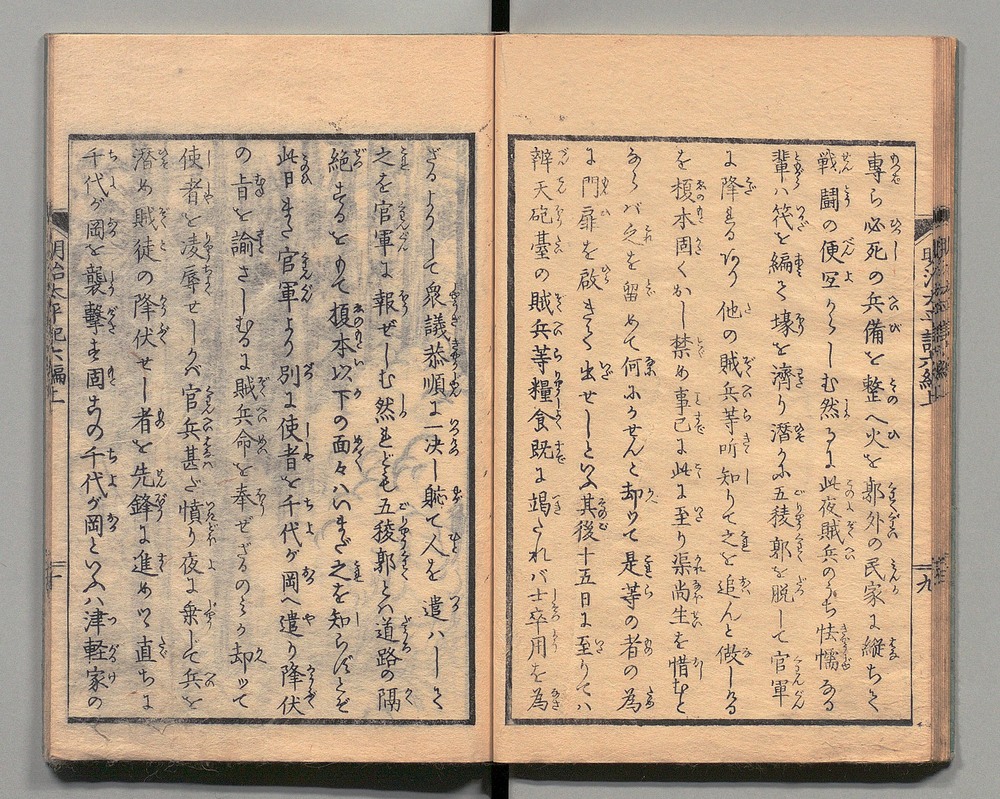 専ら必死の兵備を整へ火を郭外の民家に縦ちて
戦闘の便宜からしむ然るに此夜賊兵のうち怯懦なる
輩ハ筏を編て壕を済り潜かに五稜郭を脱して官軍
に降るあり他の賊兵等听知りて之を追んと做しける
を榎本固くかし禁め事已に此に至り渠尚生を惜むと
ならバ之を留めて何にかせんと却つて是等の者の為
に門扉を啟きて出せしといふ其後十五日に至りてハ
辨天砲臺の賊兵等糧食既に竭たれバ士卒用を為
ざるよりして衆議恭順に一决し軈て人を遣ハして
之を官軍に報ぜしむ然れども五稜郭とハ道路の隔
絶するをもて榎本以下の面々ハいまだ之を知らずとぞ
此日また官軍より別に使者を千代が岡へ遣り降伏
の旨を諭さしむるに賊兵命を奉ぜざるのミか却つて
使者を凌辱せしかバ官兵甚だ憤り夜に乗じて兵を
潜め賊徒の降伏せし者を先鋒に進めつゝ直ちに
千代が岡を襲撃す固よりこの千代が岡といふハ津軽家の
明治太平記六編上
九
明治太平記六編上
十